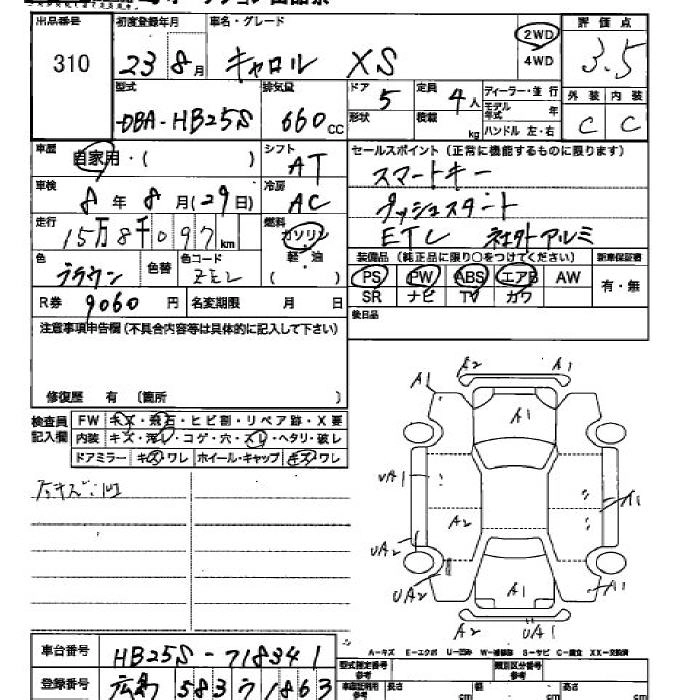 出品番号 初度登録年月 車名・グレード 評価点
310 23 8月 キャロル XS 2WD 4WD 3.5
型式 排気量 ドア 定員 ディーラー・並行 外装 内装
DBA-HB25S 660 CC 5 4人 モデル年式 年 C C
形状 積載 kg ハンドル 左・右
車歴 自家用・( ) シフト AT セールスポイント(正常に機能するものに限ります)
車検 8年 8月(29日) 冷房 AC スマートキー
プッシュスタート
走行 15万8千097km 燃料 ガソリン 軽・油 ( ) ETC 社外アルミ
色 ブラウン 色替 色コード 装備品(純正品に限り○をつけてください) 新車保証書
PS PW ABS エアB AW 有・無
SR ナビ TV カワ
R券 9060円 名変期限 月 日 後日品
注意事項申告欄(不具合内容等は具体的に記入して下さい)
修復歴 有 〔箇所 〕
検査員記入欄 FW キズ・飛石・ヒビ割・リペア跡・X要
内装 キズ・汚レ・コゲ・穴・スレ・ヘタリ・破レ
ドアミラー キズワレ ホイール・キャップ キズワレ
A2 A1
A1
A1
UA1
A1
A2
UA2
UA2
A1 A1
A2 UA1
A-キズ E-エクボ U-凹ミ W-補修跡 S-サビ C-腐食 XX-交換済
車台番号 HB25S-718341
型式指定番号 参考 類別区分番号 参考
登録番号 広島 583 71863
車庫証明用 参考 長さ cm 幅 cm 高さ cm